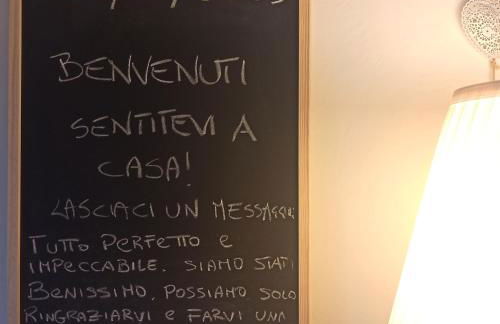 BENVENUTI
SENTITEVI A
CASA!
LASCIACI UN MESSAGGIO
TUTTO PERFETTO E
IMPECCABILE. SIAMO STATI
BENISSIMO. POSSIAMO SOLO
RINGRAZIARVI E FARVI UNA